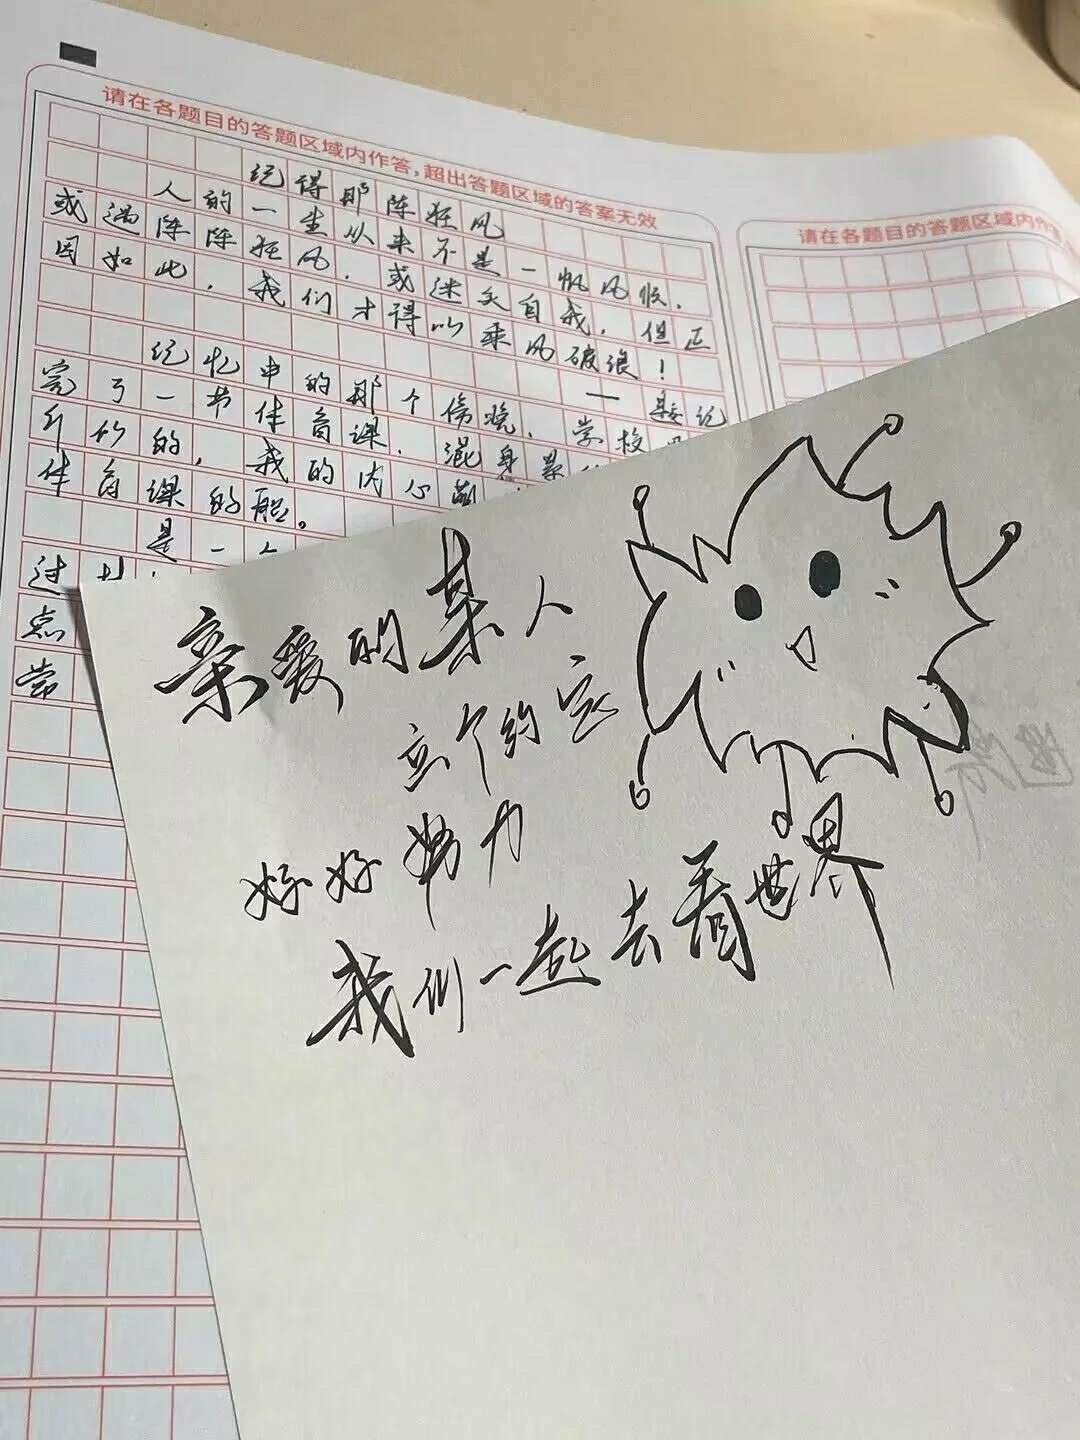 请在各题目的答题区域内作答，超出答题区域的答案无效
记得那阵狂风
人的一生从来不是一帆风顺，
或遇阵阵狂风，或迷失自我，但正
因如此，我们才得以乘风破浪！
记忆中的那个傍晚，学校
完了一节体育课，混身是
的，我的内心
体育课的脏。
是一
过
点
常
请在各题目的答题区域内作
亲爱的某人
立个约定
好好努力
我们一起去看世界